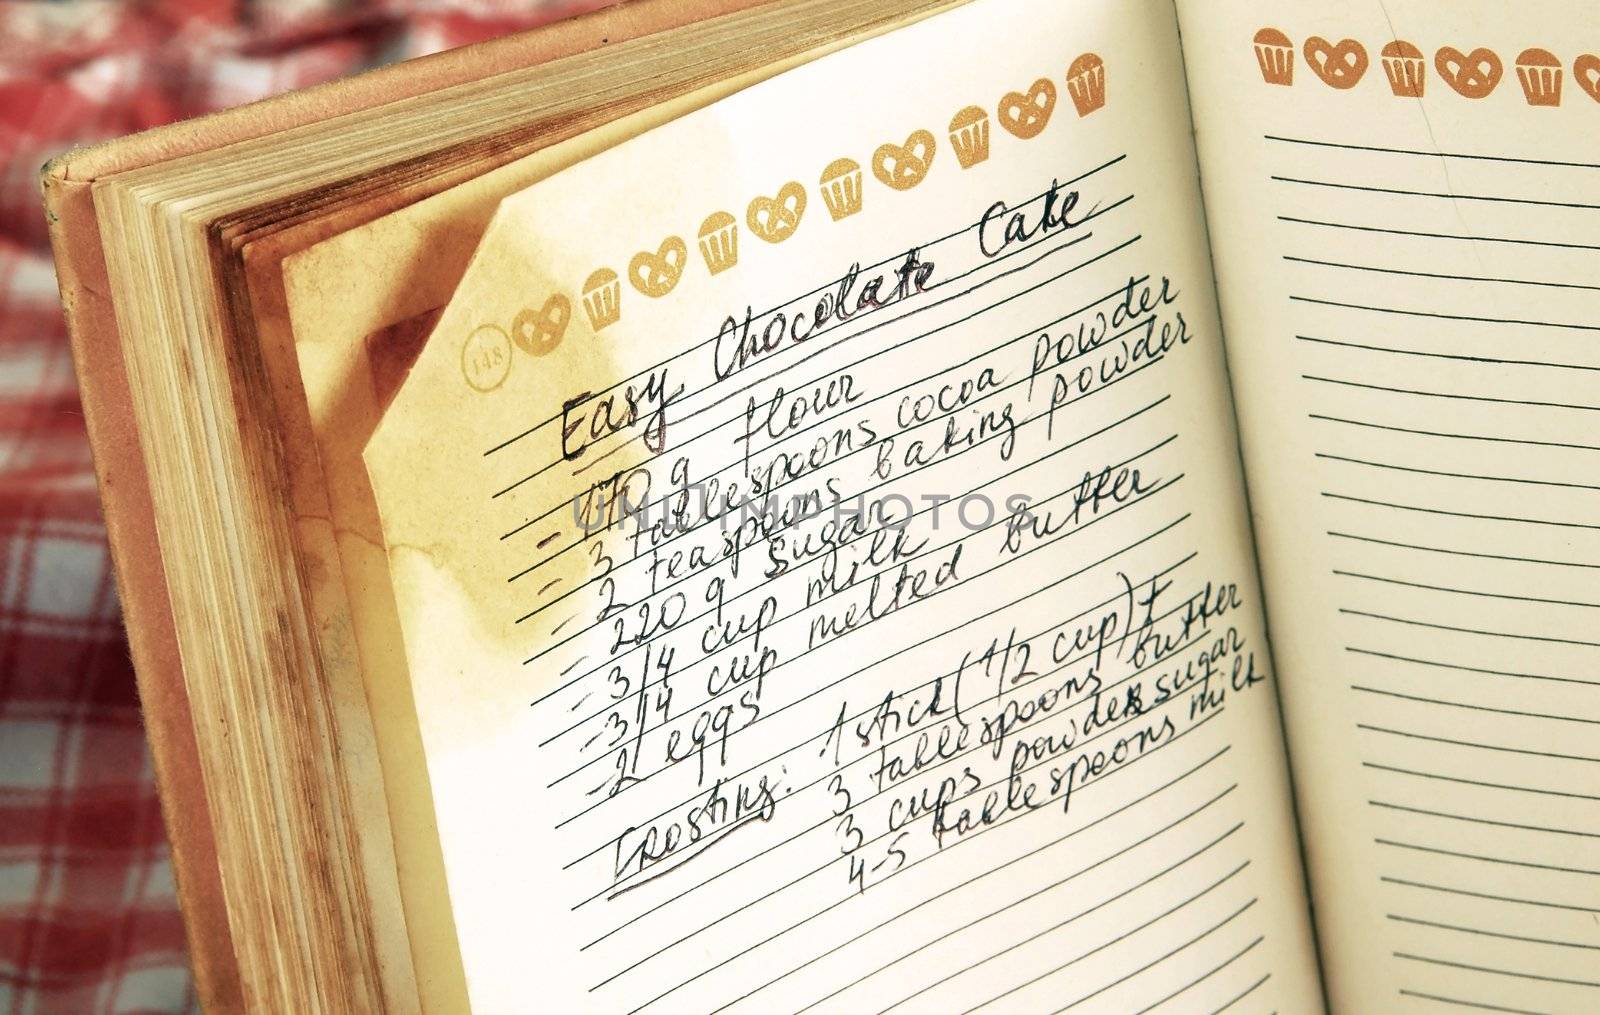 148
Easy Chocolate Cake
- 170 g flour
- 3 tablespoons cocoa powder
- 2 teaspoons baking powder
- 220 g sugar
- 3/4 cup milk
- 3/4 cup melted butter
- 2 eggs
Frosting: 1 stick (1/2 cup) +
3 tablespoons butter
3 cups powder sugar
4-5 tablespoons milk
UNLIMPHOTOS